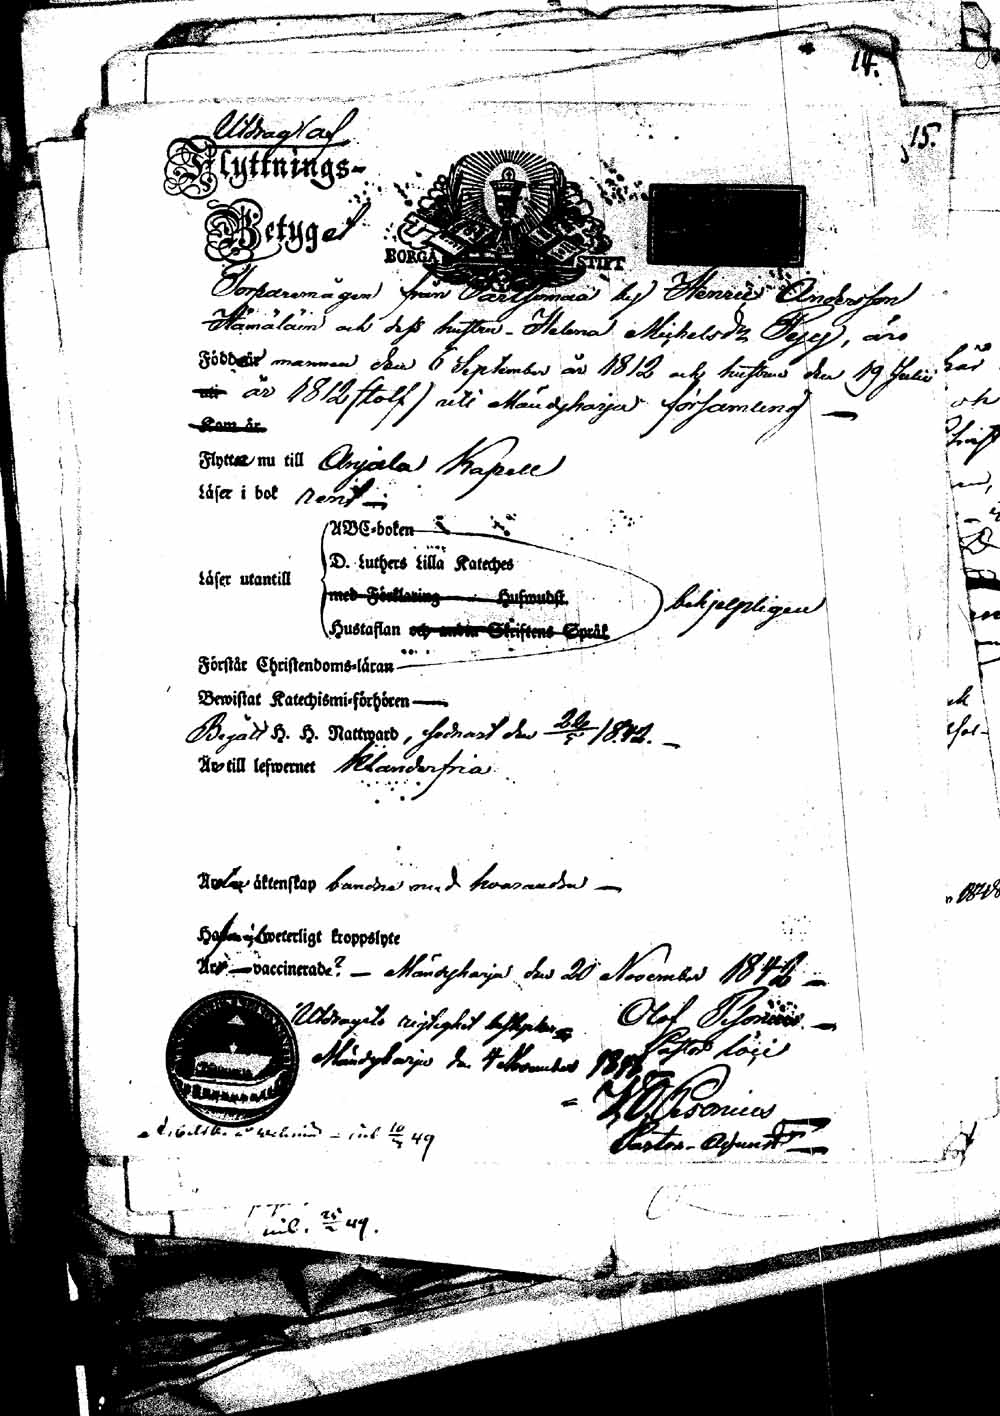 14.
15.
Utdrag af
Flyttnings-
Betyget
BORGÅ STIFT
Torparemågen från Partsomaa by Henric Andersson
Hämäläin och dess hustru Helena Michelsdr Pyy, äro
Född är mannen den 6 September år 1812 och hustrun den 19 Julii
år 1812 (tolf) uti Mändyharju församling —
Kom år
Flytta nu till Anjala Kapell
Läser i bok rent —
ABC-boken
D. Luthers Lilla Kateches
Läser utantill
med Förklaring Hufwudst.
behjelpligen
Hustaflan och andra Skriftens Språk
Förstår Christendoms-läran
Bewistat Katechismi-förhören —
Begått H. H. Nattward, sednast den 22/5 1842. —
Är till lefwernet klanderfria
äktenskap bundna med hwarandra —
weterligt kroppslyte
Äro — vaccinerade? — Mändyharju den 20 November 184
Utdragets rigtighet
Olof Pesonius. —
Pastor loci
Mändyharju den 4 November 184
Pesonius
Pastors-Adjunct
49
49.